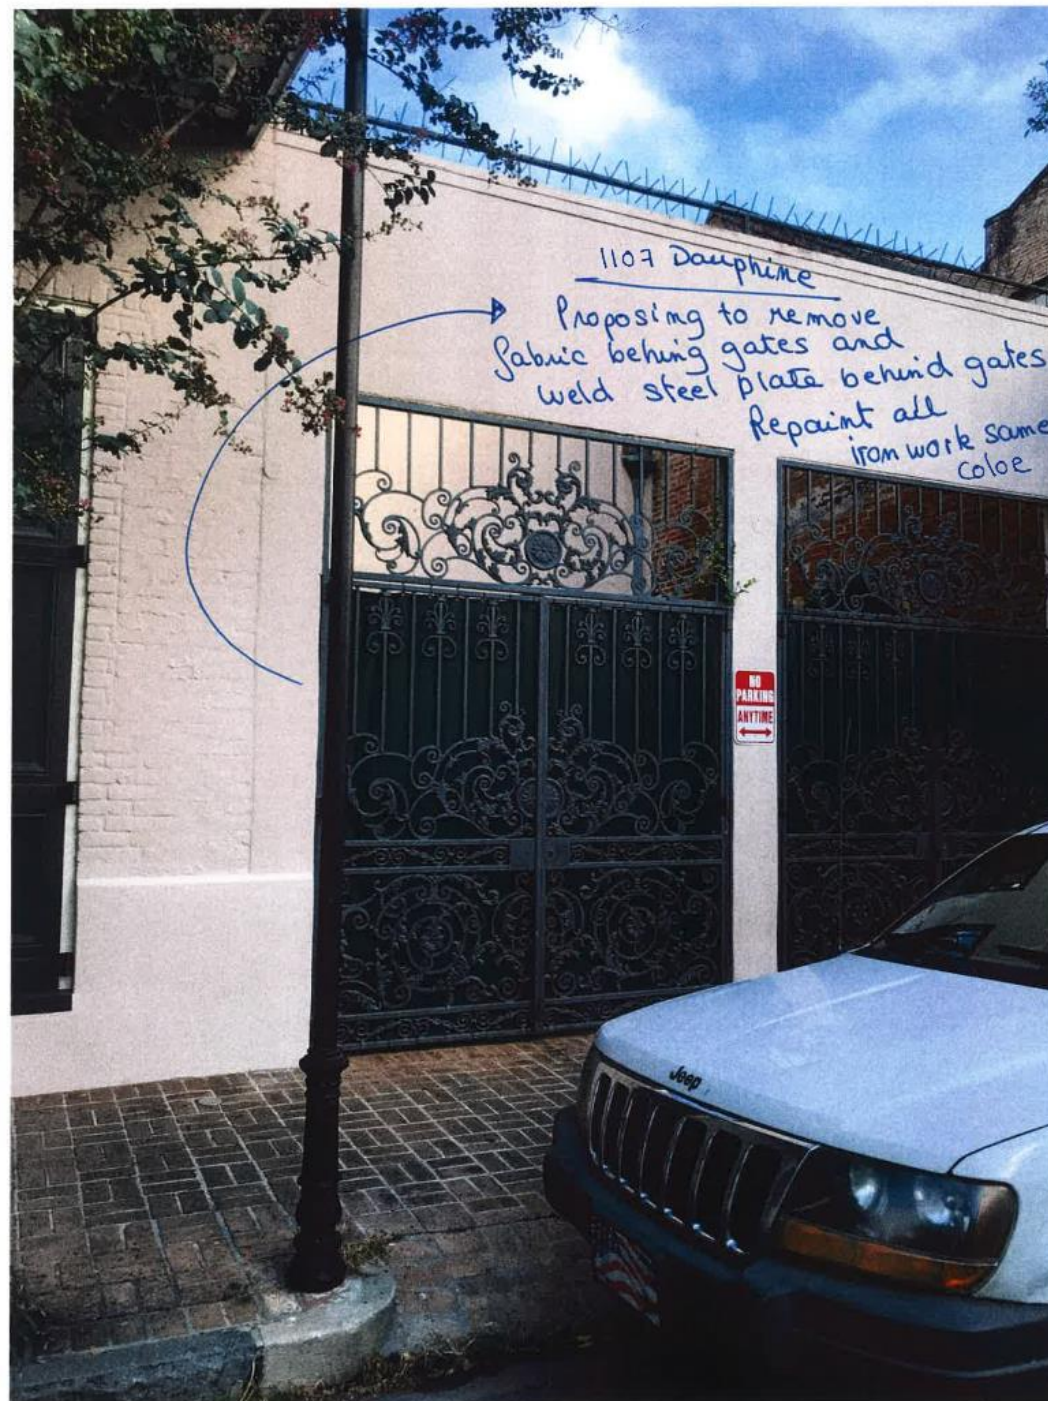 1107 Dauphine
Proposing to remove
fabric behing gates and
weld steel plate behind gates
Repaint all
iron work same
coloe
NO
PARKING
ANYTIME
Jeep